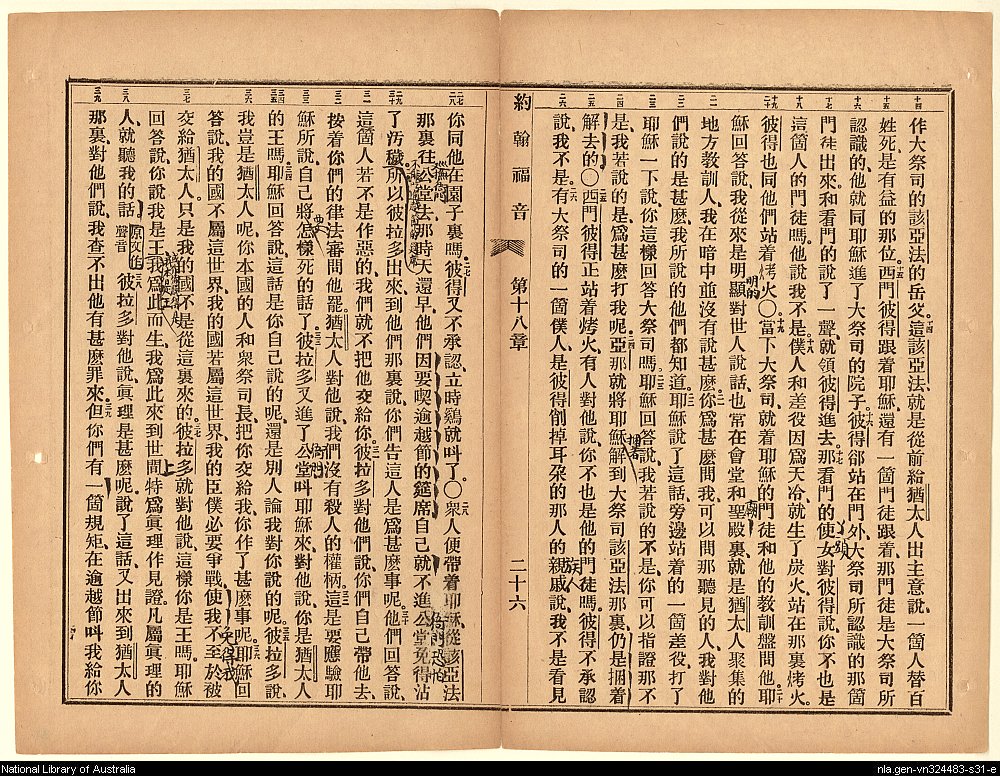 作大祭司的該亞法的岳父這該亞法就是從前給猶太人出主意說一箇人替百
姓死是有益的那位西門彼得跟着耶穌還有一箇門徒跟着那門徒是大祭司所
認識的他就同耶穌進了大祭司的院子彼得卻站在門外大祭司所認識的那箇
門徒出來和看門的說了一聲就領彼得進去那看門的使女對彼得說你不也是
這箇人的門徒嗎他說我不是僕人和差役因為天冷就生了炭火站在那裏烤火
彼得也同他們站着烤火〇當下大祭司就着耶穌的門徒和他的教訓盤問他耶
穌回答說我從來是明顯對世人說話也常在會堂和聖殿裏就是猶太人聚集的
地方教訓人我在暗中並沒有說甚麼你為甚麼問我可以問那聽見的人我對他
們說的是甚麼我所說的他們都知道耶穌說了這話旁邊站着的一箇差役打了
耶穌一下說你這樣回答大祭司嗎耶穌回答說我若說的不是你可以指證那不
是我若說的是為甚麼打我呢亞那就將耶穌解到大祭司該亞法那裏仍是捆着
解去的〇西門彼得正站着烤火有人對他說你不也是他的門徒嗎彼得不承認
說我不是有大祭司的一箇僕人是彼得削掉耳朶的那人的親戚說我不是看見
約翰福音 第十八章 二十六
你同他在園子裏嗎彼得又不承認立時鷄就叫了〇衆人便帶着耶穌從該亞法
那裏往公堂去那時天還早他們因要喫逾越節的筵席自己就不進公堂免得沾
了汚穢所以彼拉多出來到他們那裏說你們告這人是為甚麼事呢他們回答說
這箇人若不是作惡的我們就不把他交給你彼拉多對他們說你們自己帶他去
按着你們的律法審問他罷猶太人對他說我們沒有殺人的權柄這是要應驗耶
穌所說自己將怎樣死的話了彼拉多又進了公堂叫耶穌來對他說你是猶太人
的王嗎耶穌回答說這話是你自己說的呢還是別人論我對你說的呢彼拉多說
我豈是猶太人呢你本國的人和衆祭司長把你交給我你作了甚麼事呢耶穌回
答說我的國不屬這世界我的國若屬這世界我的臣僕必要爭戰使我不至於被
交給猶太人只是我的國不是從這裏來的彼拉多就對他說這樣你是王嗎耶穌
回答說你說我是王我為此而生我為此來到世間特為眞理作見證凡屬眞理的
人就聽我的話聲音彼拉多對他說眞理是甚麼呢說了這話又出來到猶太人
那裏對他們說我查不出他有甚麼罪來但你們有一箇規矩在逾越節叫我給你
National Library of Australia
nla.gen-vn324483-s31-e